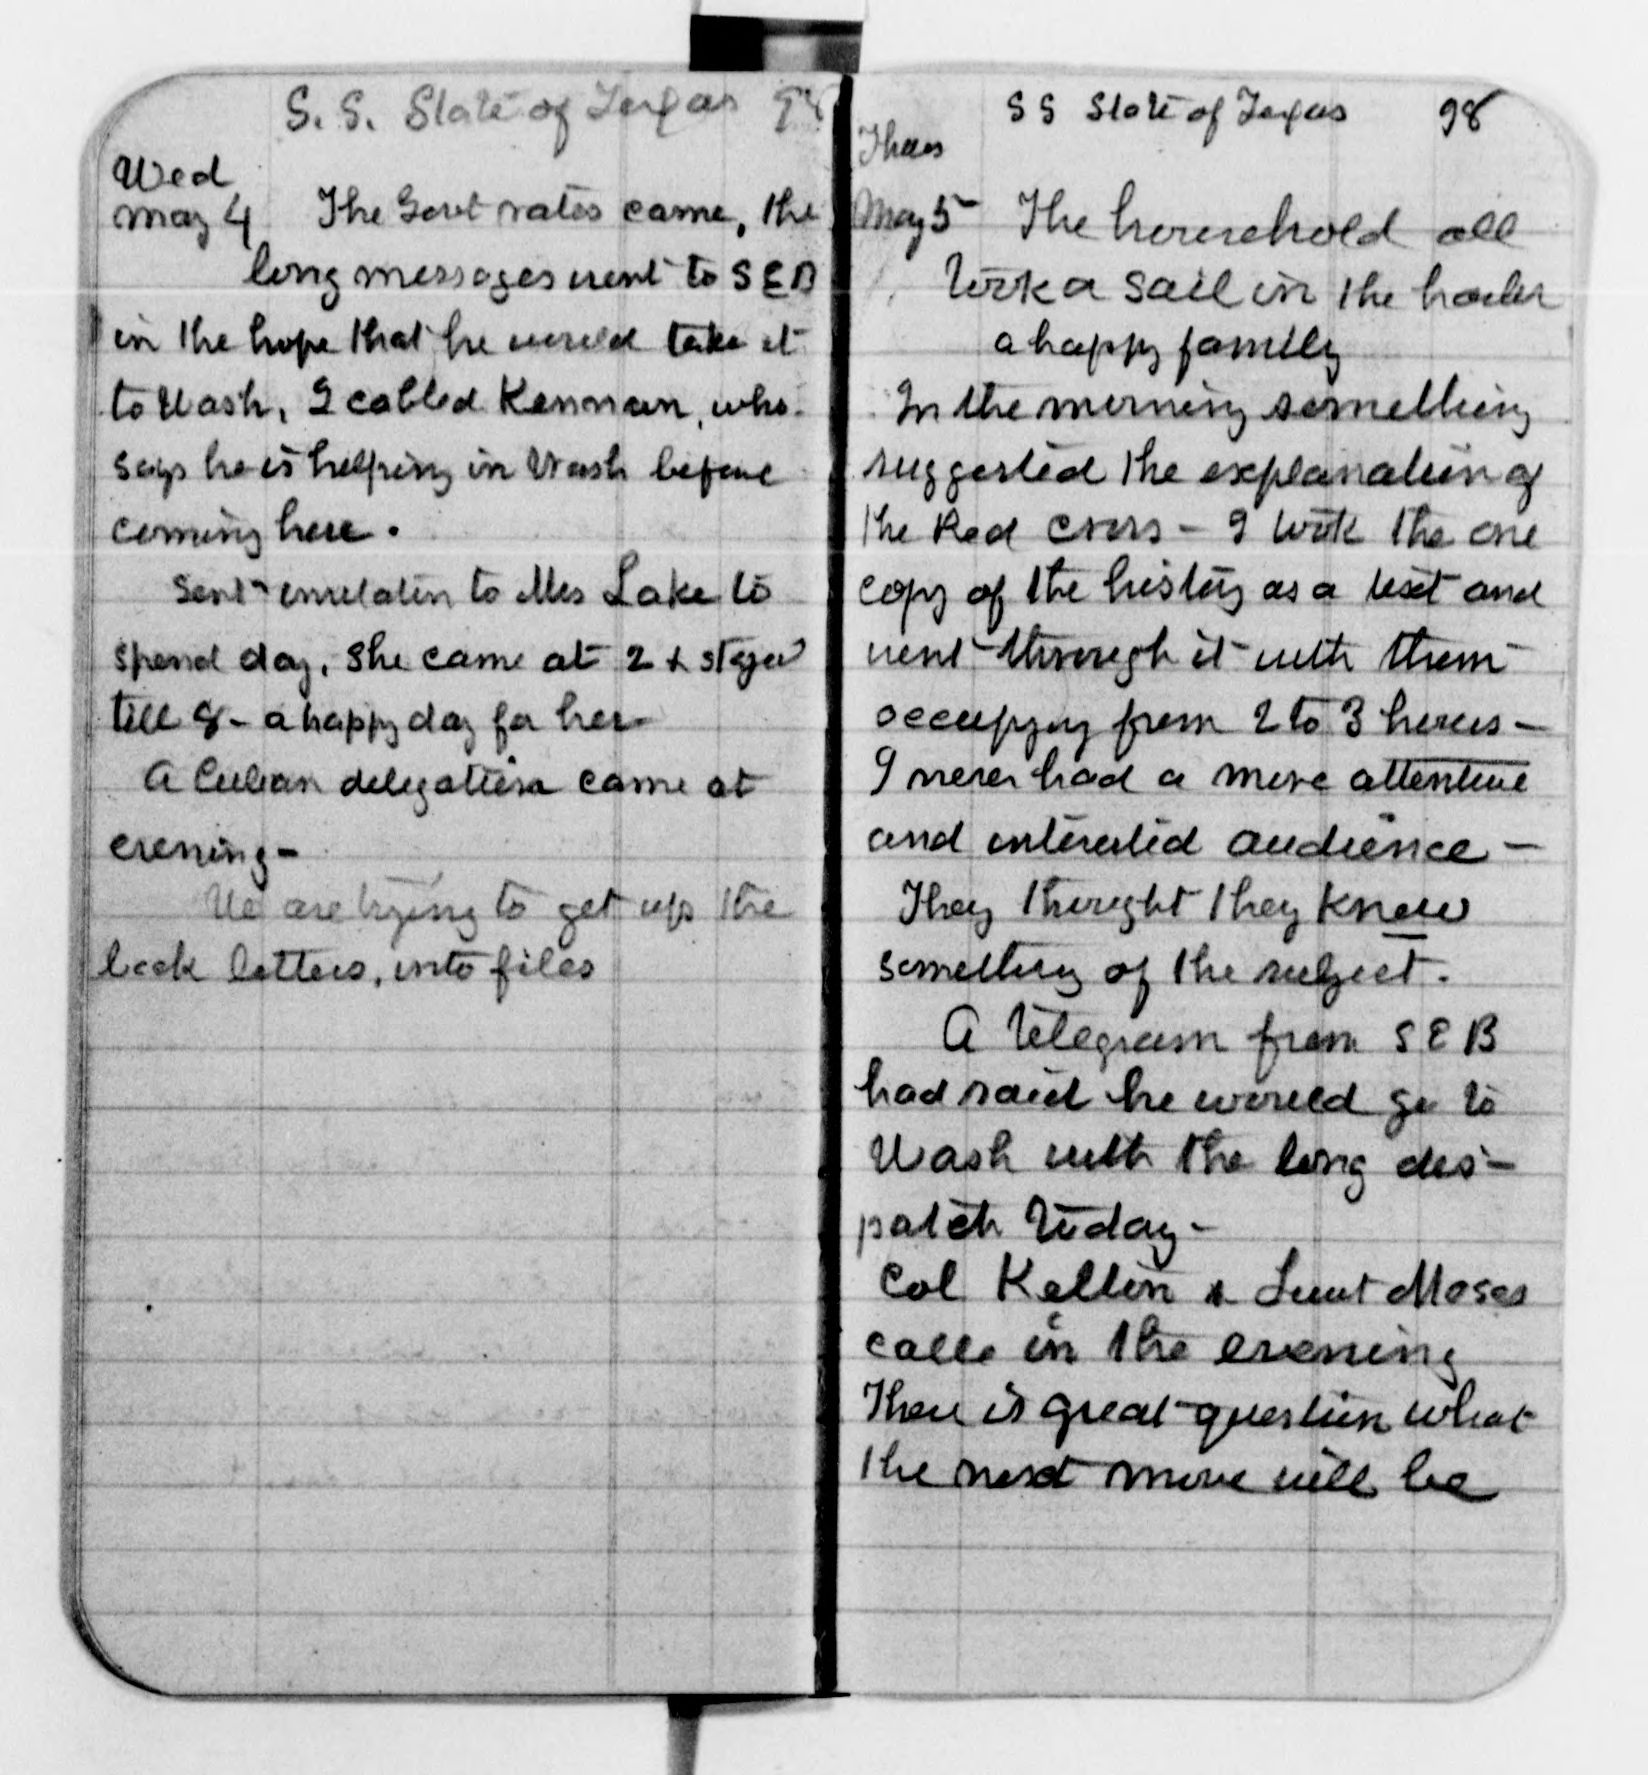 S. S. State of Texas 98
Wed
May 4 The Govt rates came, the
long messages went to S E B
in the hope that he would take it
to Wash, I cabled Kennan, who
says he is helping in Wash before
coming here.
Sent invitation to Mrs Lake to
spend day, she came at 2 & stayed
till 8 - a happy day for her
A Cuban delegation came at
evening -
We are trying to get up the
back letters, into files
S S State of Texas 98
Thurs
May 5 The household all
took a sail in the harbor
a happy family
In the morning something
suggested the explanation of
the Red Cross - I took the one
copy of the history as a text and
went through it with them
occupying from 2 to 3 hours -
I never had a more attentive
and interested audience -
They thought they knew
something of the subject.
A telegram from S E B
had said he would go to
Wash with the long des-
patch today -
Col & Lieut Moses
calls in the evening
There is great question what
the next move will be